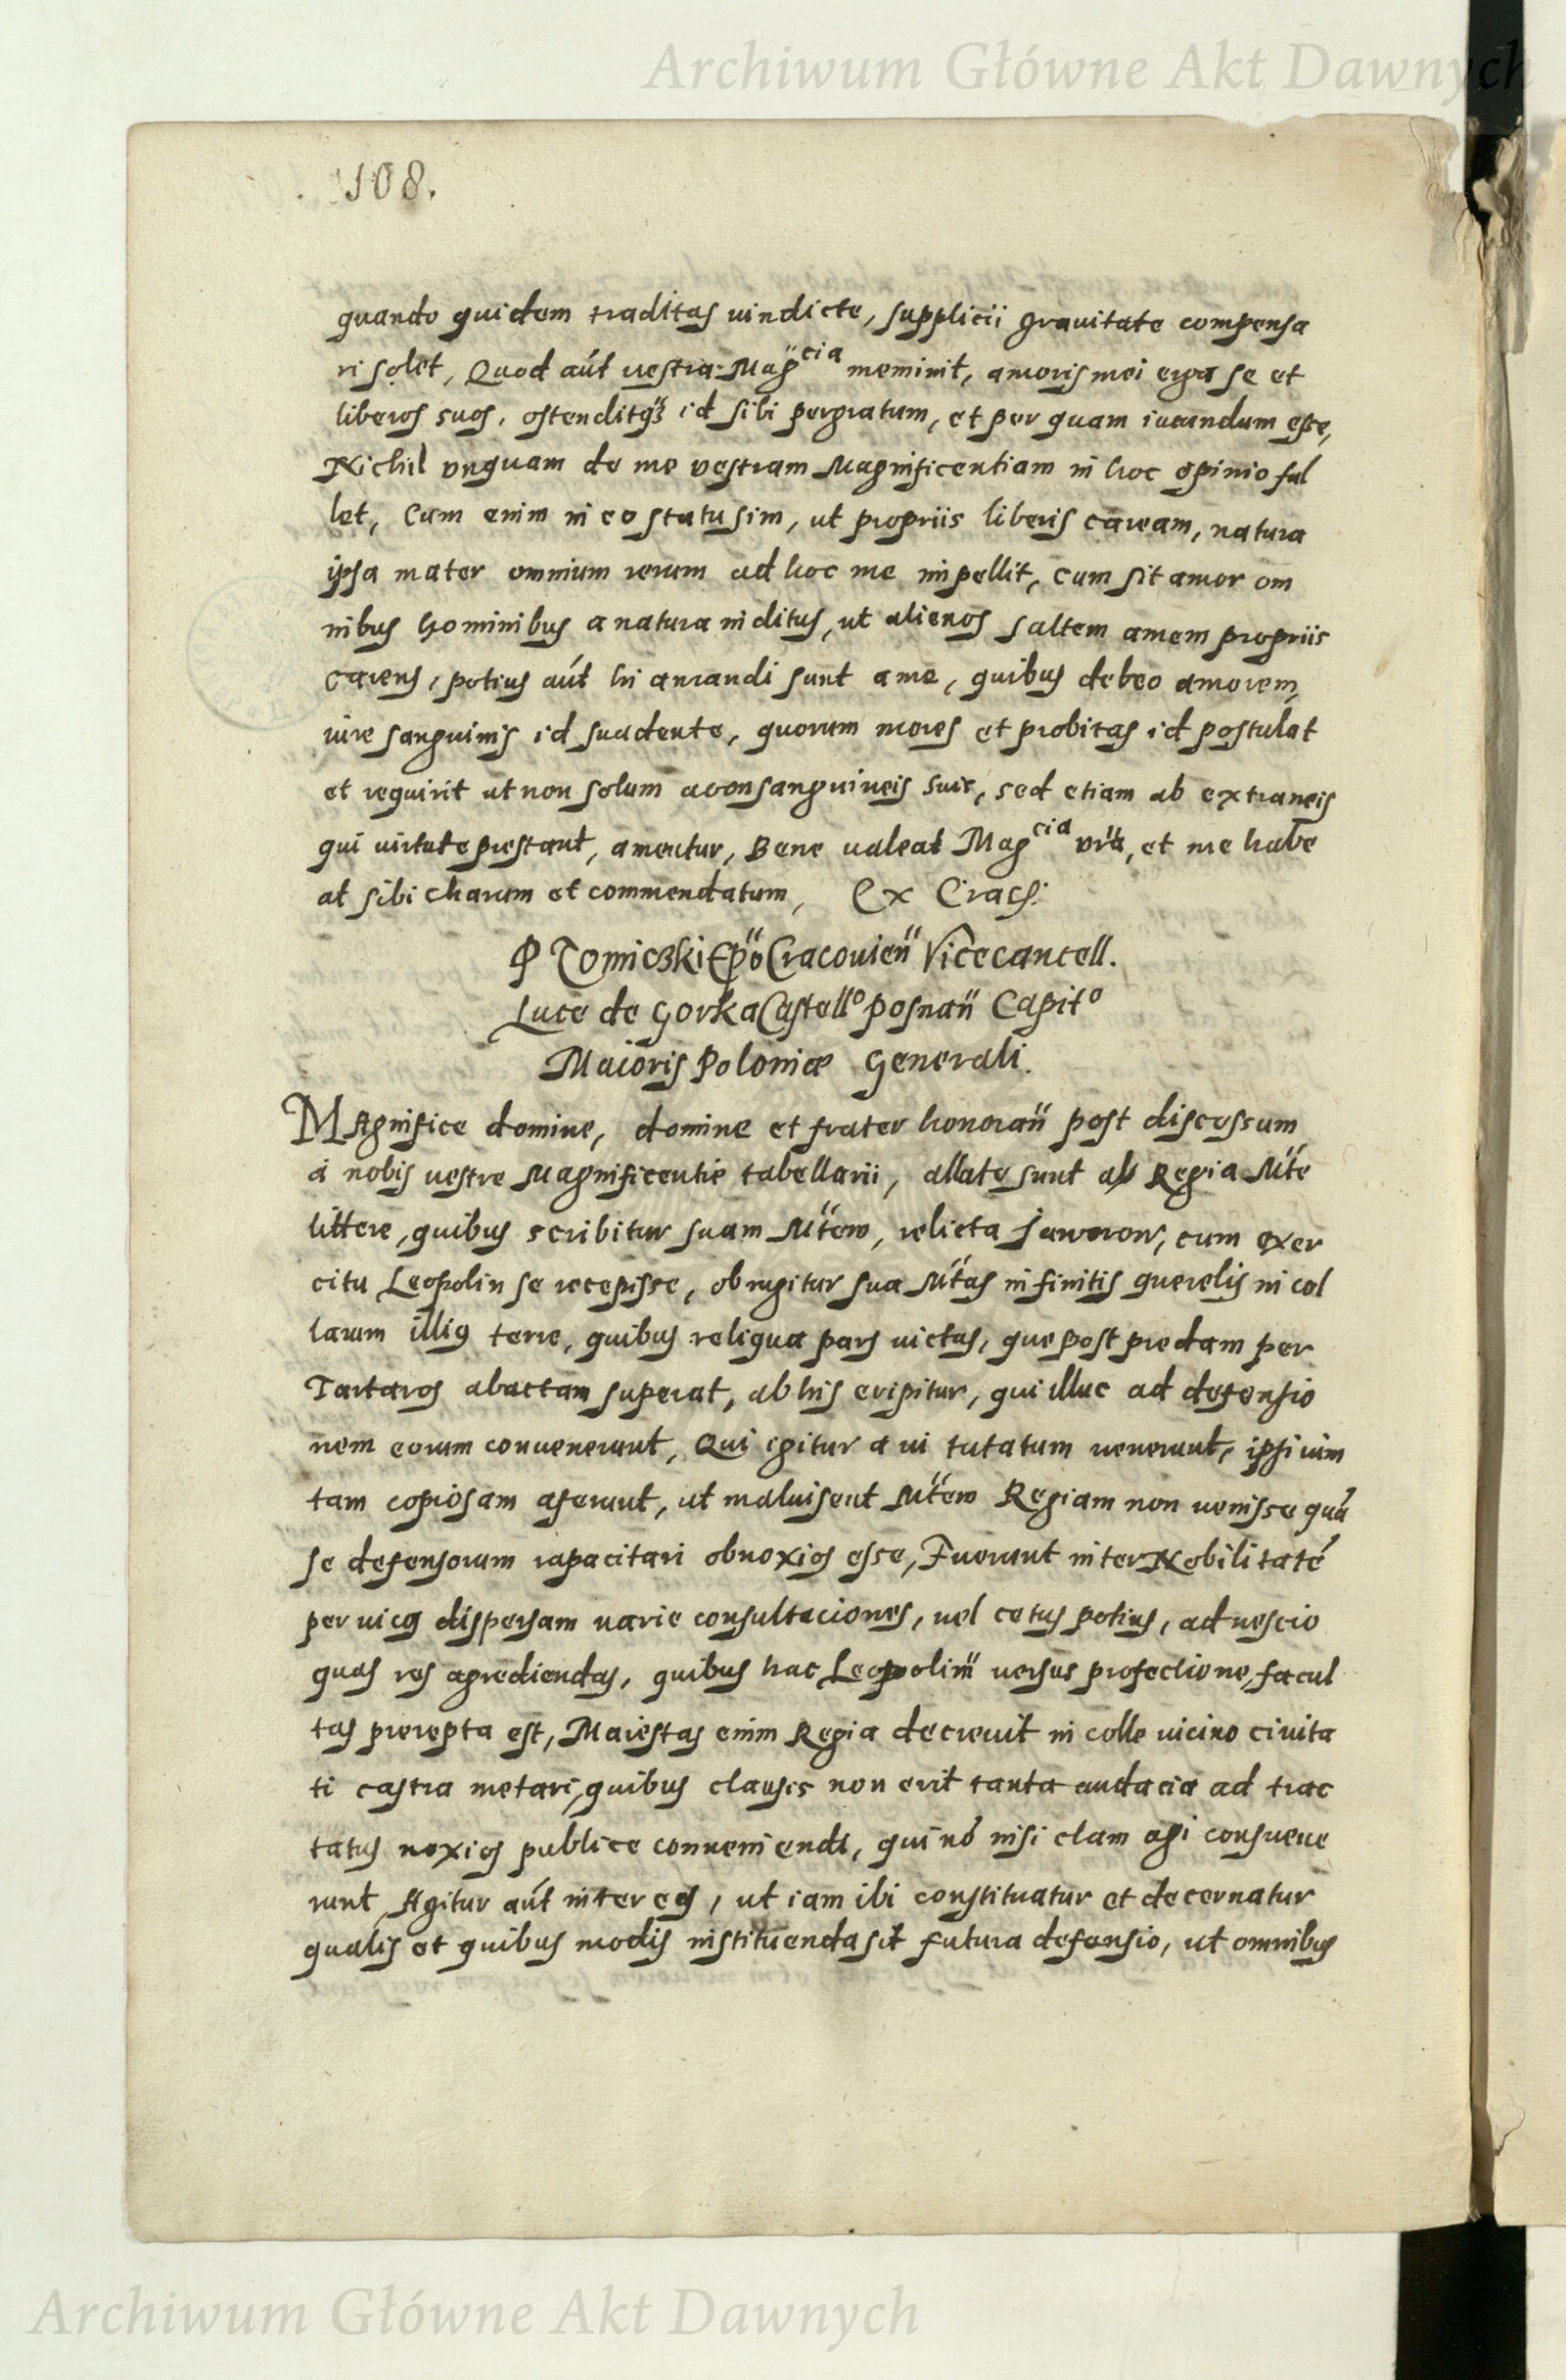 Archiwum Główne Akt Dawnych
108.
quando quidem traditas vindicte, supplicii gravitate compensa
ri solet, Quod aut vestra Mag cia meminit, amoris mei erga se et
liberos suos, ostenditq id sibi pergratum, et per quam iucundum esse,
Nichil vnquam de me vestram Magnificentiam in hoc opinio fal
let, Cum enim in eo statu sim, ut propriis liberis caream, natura
ipsa mater omnium rerum ad hoc me impellit, cum sit amor om
nibus hominibus a natura inditus, ut alienos saltem amem propriis
carens, potius aut hi amandi sunt a me, quibus debeo amorem,
iure sanguinis id suadente, quorum mores et probitas id postulat
et requirit ut non solum a consanguineis suis, sed etiam ab extraneis
qui uirtute prestant, amentur, Bene ualeat Mag cia vra, et me habe
at sibi charum et commendatum, Ex Crac:
P Tomiczki Epo Cracouien Vicecancell.
Luce de Gorka Castello posnan Capito
Maioris Poloniæ Generali.
MAgnifice domine, domine et frater honoran post discessum
a nobis uestre Magnificentie tabellarii, allate sunt ab Regia Mte
littere, quibus scribitur suam Mtem, relicta Jaworow, cum exer
citu Leopolin se recepisse, obrugitur sua Mtas infinitis querelis incol
larum illiq terre, quibus reliqua pars uictus, que post predam per
Tartaros abactam superat, ab his eripitur, qui illuc ad defensio
nem eorum conuenerunt, Qui igitur a ui tutatum uenerunt, ipsi uim
tam copiosam aferunt, ut maluisent Mtem Regiam non uenisse qua
se defensorum rapacitati obnoxios esse, Fuerunt inter Nobilitate
per uicq dispersam varie consultaciones, uel cetus potius, ad nescio
quas res agrediendas, quibus hac Leopolim uersus profectione, facul
tas prerepta est, Maiestas enim Regia decreuit in colle uicino ciuita
ti castra metari, quibus clausis non erit tanta audacia ad trac
tatus noxios publice conueniendi, qui no nisi clam agi consueue
runt, Agitur aut inter eos, ut iam ibi constituatur et decernatur
qualis et quibus modis instituenda sit futura defensio, ut omnibus
Archiwum Główne Akt Dawnych